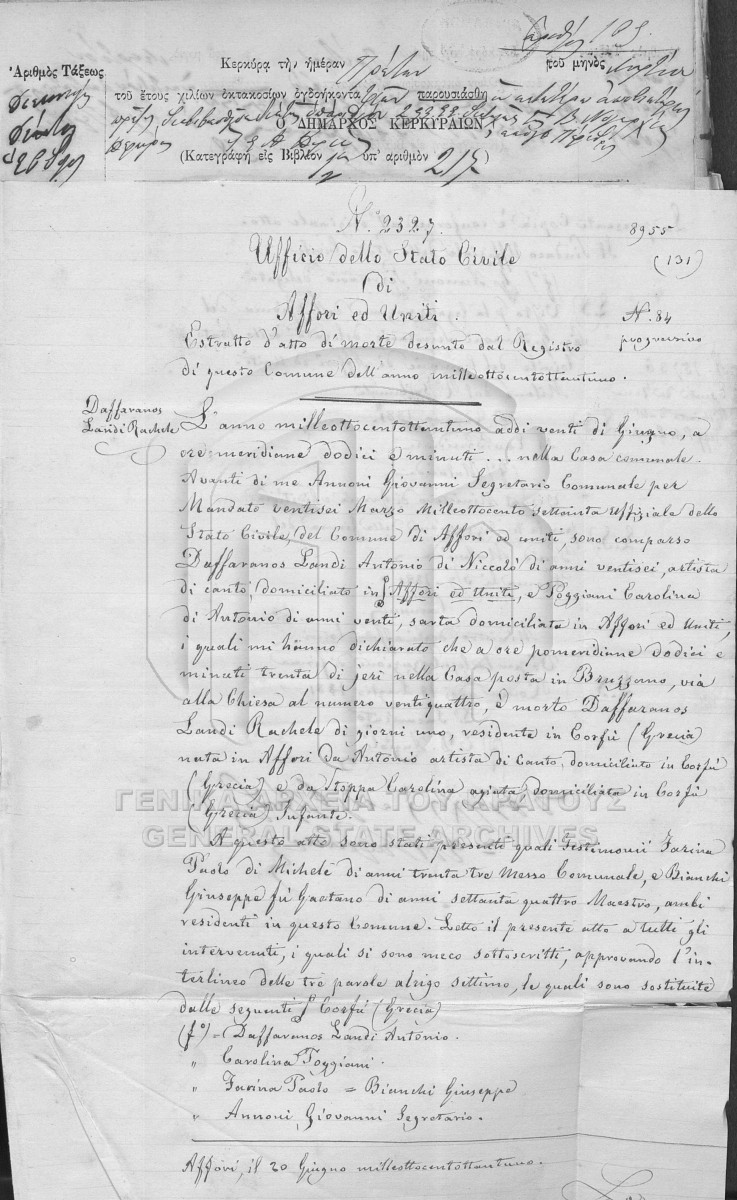 109.
Ἀριθμὸς Τάξεως
Κερκύρα τῇ ἡμέραν Πρώτην τοῦ μηνὸς
τοῦ ἔτους χιλίων ὀκτακοσίων ὀγδοήκοντα παρουσιάσθη
Ὁ ΔΗΜΑΡΧΟΣ ΚΕΡΚΥΡΑΙΩΝ
(Κατεγράφη εἰς Βιβλίον ὑπ' ἀριθμὸν 217)
N.º 2327.
8955
(131)
Ufficio dello Stato Civile
di
Affori ed Uniti.
N. 84
progressivo
Estratto d'atto di morte desunto dal Registro
di questo Comune dell'anno milleottocentottantuno.
Daffaranos
Landi Rachele
L'anno milleottocentottantuno addi venti di Giugno, a
ore meridiane dodici e minuti ... nella Casa comunale.
Avanti di me Annoni Giovanni Segretario Comunale per
Mandato ventisei Marzo Milleottocento settointa Uffiziale dello
Stato Civile, del Comune di Affori ed uniti, sono comparso
Daffaranos Landi Antonio di Niccolò di anni ventisei, artista
di canto domiciliato in Affori ed Uniti, e Poggiani Carolina
di Antonio di anni venti, sarta domiciliata in Affori ed Uniti,
i quali mi hanno dichiarato che a ore pomeridiane dodici e
minuti trenta di jeri nella Casa posta in Bruzzano, via
alla Chiesa al numero ventiquattro, è morto Daffaranos
Landi Rachele di giorni uno, residente in Corfù (Grecia)
nata in Affori da Antonio artista di Canto, domiciliato in Corfù
(Grecia) e da Stoppa Carolina agiata domiciliata in Corfù
(Grecia) Infante.
ΓΕΝΙΚΑ ΑΡΧΕΙΑ ΤΟΥ ΚΡΑΤΟΥΣ
GENERAL STATE ARCHIVES
A questo atto sono stati presenti quali Testimonii Farina
Paolo di Michele di anni trenta tre Messo Comunale, e Bianchi
Giuseppe fù Gaetano di anni settanta quattro Maestro, ambi
residenti in questo Comune. Letto il presente atto a tutti gli
intervenuti, i quali si sono meco sottoscritti, approvando l'in-
terlineo delle tre parole alrigo settimo, le quali sono sostituite
dalle seguenti Corfù (Grecia)
(fº) = Daffaranos Landi Antonio.
" Carolina Poggiani.
" Farina Paolo = Bianchi Giuseppe
" Annoni, Giovanni Segretario.
Affori, il 20 Giugno milleottocentottantuno.